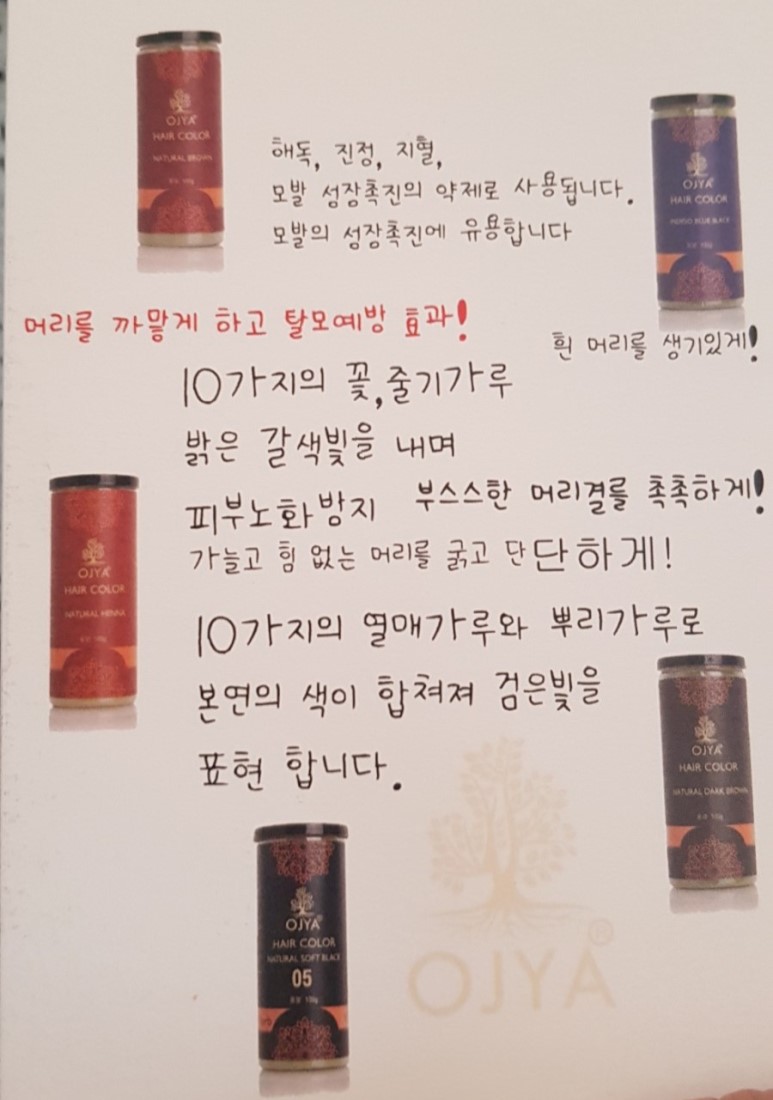 OJYA®
HAIR COLOR
NATURAL BROWN
해독, 진정, 지혈,
모발 성장촉진의 약제로 사용됩니다.
모발의 성장촉진에 유용합니다
OJYA®
HAIR COLOR
INDIGO BLUE BLACK
머리를 까맣게 하고 탈모예방 효과!
흰 머리를 생기있게!
10가지의 꽃,줄기가루
밝은 갈색빛을 내며
피부노화방지 부스스한 머리결를 촉촉하게!
가늘고 힘 없는 머리를 굵고 단단하게!
OJYA®
HAIR COLOR
NATURAL HENNA
10가지의 열매가루와 뿌리가루로
본연의 색이 합쳐져 검은빛을
표현 합니다.
OJYA®
HAIR COLOR
NATURAL DARK BROWN
OJYA®
HAIR COLOR
NATURAL SOFT BLACK
05
OJYA®